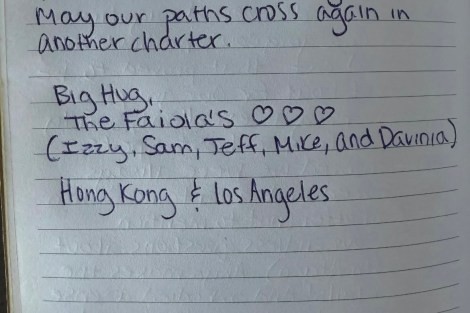 May our paths cross again in
another charter.
Big Hug,
The Faiola's ♡ ♡ ♡
(Izzy, Sam, Jeff, Mike, and Davinia)
Hong Kong & Los Angeles